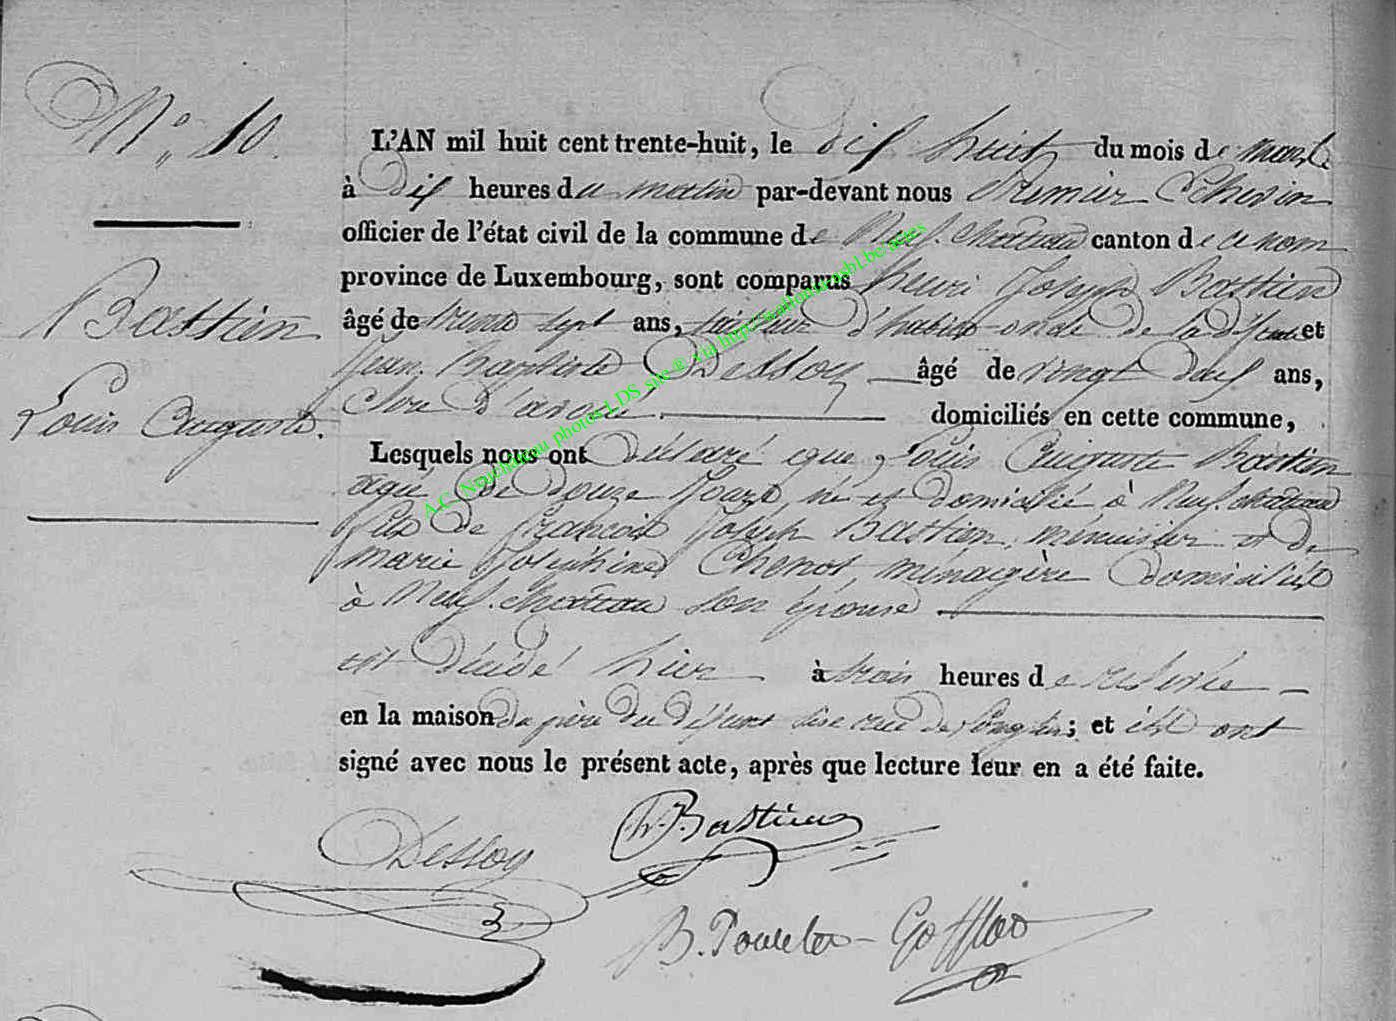 N° 10.
L'AN mil huit cent trente-huit, le dix huit du mois de mars
à Dix heures du matin par-devant nous premier Echevin
officier de l'état civil de la commune de Neuf.château canton de ce nom
province de Luxembourg, sont comparus henri Joseph Bastien
âgé de trente sept ans, tailleur d'habits oncle de la défunt et
Jean Baptiste Dessoy âgé de vingt neuf ans,
Clerc d'avoué domiciliés en cette commune,
Lesquels nous ont Déclaré que Louis Auguste Bastien
agé de douze jours né et domicilié à Neuf.château
fils de francois Joseph Bastien, menuisier et de
marie Joséphine Chenot, ménagère domiciliés
à Neuf.château son épouse
est décédé hier à trois heures de relevée
en la maison du père du défunt sise rue de Longlier; et ils ont
signé avec nous le présent acte, après que lecture leur en a été faite.
Bastien
Louis Auguste.
Dessoy
h. J. Bastien
B. Poncelet-Goffloo
A.C. Neufchâteau photos LDS site © via http://wallonica asbl.be/actes